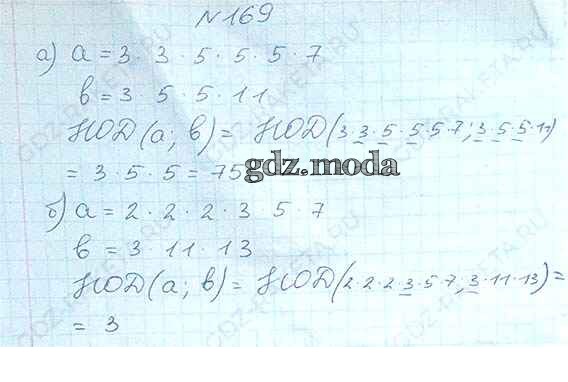 №169
а) a = 3 · 3 · 5 · 5 · 5 · 7
в = 3 · 5 · 5 · 11
НОД(а; в) = НОД(3·3·5·5·5·7; 3·5·5·11)
= 3 · 5 · 5 = 75
gdz.moda
б) а = 2 · 2 · 2 · 3 5 · 7
в = 3 · 11 · 13
НОД(а; в) = НОД(2·2·2·3·5·7; 3·11·13) =
= 3